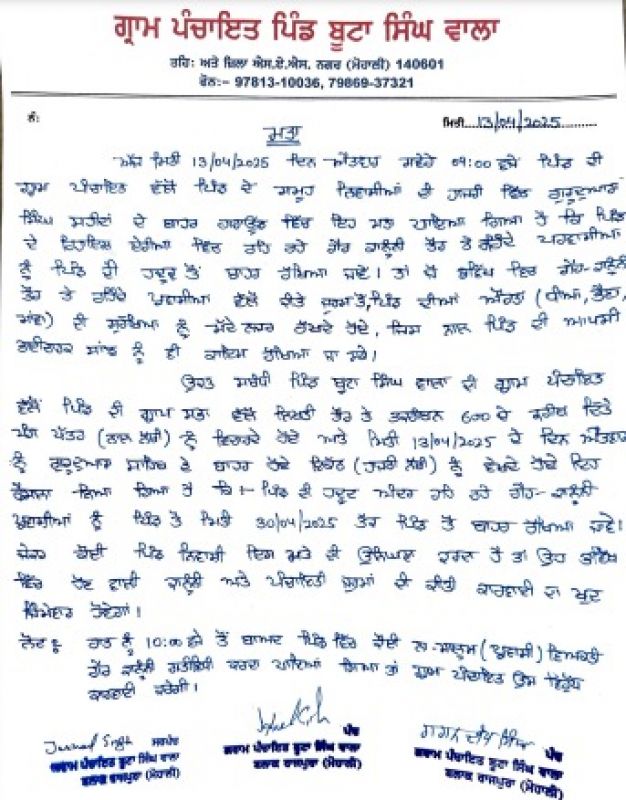 ਗ੍ਰਾਮ ਪੰਚਾਇਤ ਪਿੰਡ ਬੂਟਾ ਸਿੰਘ ਵਾਲਾ
ਤਹਿ: ਅਤੇ ਜ਼ਿਲਾ ਐਸ.ਏ.ਐਸ. ਨਗਰ (ਮੋਹਾਲੀ) 140601
ਫੋਨ:- 97813-10036, 79869-37321
ਨੰ: ਮਿਤੀ 13/04/2025
ਮਤਾ
ਅੱਜ ਮਿਤੀ 13/04/2025 ਦਿਨ ਐਤਵਾਰ ਸਵੇਰੇ 09:00 ਵਜੇ ਪਿੰਡ ਦੀ
ਗ੍ਰਾਮ ਪੰਚਾਇਤ ਵੱਲੋਂ ਪਿੰਡ ਦੇ ਸਮੂਹ ਨਿਵਾਸੀਆਂ ਦੀ ਹਾਜ਼ਰੀ ਵਿੱਚ ਗੁਰੂਦੁਆਰਾ
ਦੇ ਬਾਹਰ ਗਰਾਊਂਡ ਵਿੱਚ ਇਹ ਮਤਾ ਪਾਇਆ ਗਿਆ ਹੈ ਕਿ ਪਿੰਡ
ਦੇ ਰਿਹਾਇਸ਼ ਏਰੀਆ ਵਿੱਚ ਰਹਿ ਰਹੇ ਗੈਰ ਕਾਨੂੰਨੀ ਤੌਰ ਤੇ ਪਰਵਾਸੀਆਂ
ਨੂੰ ਪਿੰਡ ਦੀ ਹਦੂਦ ਤੋਂ ਬਾਹਰ ਰੱਖਿਆ ਜਾਵੇ। ਤਾਂ ਜੋ ਭਵਿੱਖ ਵਿੱਚ ਗੈਰ-ਕਾਨੂੰਨੀ
ਤੌਰ ਤੇ ਰਹਿੰਦੇ ਪ੍ਰਵਾਸੀਆਂ ਵੱਲੋਂ ਕੀਤੇ ਜੁਰਮ ਤੋਂ, ਪਿੰਡ ਦੀਆਂ ਔਰਤਾਂ (ਧੀਆਂ, ਭੈਣਾਂ,
ਮਾਵਾਂ) ਦੀ ਸੁਰੱਖਿਆ ਨੂੰ ਮੱਦੇ ਨਜ਼ਰ ਰੱਖਦੇ ਹੋਏ, ਜਿਸ ਨਾਲ ਪਿੰਡ ਦੀ ਆਪਸੀ
ਭਾਈਚਾਰਕ ਸਾਂਝ ਨੂੰ ਵੀ ਕਾਇਮ ਰੱਖਿਆ ਜਾ ਸਕੇ।
ਉਕਤ ਸਬੰਧੀ ਪਿੰਡ ਬੂਟਾ ਸਿੰਘ ਵਾਲਾ ਦੀ ਗ੍ਰਾਮ ਪੰਚਾਇਤ
ਵੱਲੋਂ ਪਿੰਡ ਦੀ ਗ੍ਰਾਮ ਸਭਾ ਵੱਲੋਂ ਲਿਖਤੀ ਤੌਰ ਤੇ ਤਕਰੀਬਨ 600 ਦੇ ਕਰੀਬ ਦਿੱਤੇ
ਮੰਗ ਪੱਤਰ (ਨਾਲ ਲੱਗੀ) ਨੂੰ ਵਿਚਾਰਦੇ ਹੋਏ ਅਤੇ ਮਿਤੀ 13/04/2025 ਦੇ ਦਿਨ ਐਤਵਾਰ
ਨੂੰ ਗੁਰਦੁਆਰਾ ਸਾਹਿਬ ਦੇ ਬਾਹਰ ਹੋਏ ਇਕੱਠ (ਹਾਜ਼ਰੀ ਲੱਗੀ) ਨੂੰ ਵੇਖਦੇ ਹੋਏ ਇਹ
ਫੈਸਲਾ ਲਿਆ ਗਿਆ ਹੈ ਕਿ:- ਪਿੰਡ ਦੀ ਹਦੂਦ ਅੰਦਰ ਰਹਿ ਰਹੇ ਗੈਰ-ਕਾਨੂੰਨੀ
ਪ੍ਰਵਾਸੀਆਂ ਨੂੰ ਪਿੰਡ ਤੋਂ ਮਿਤੀ 30/04/2025 ਤੱਕ ਪਿੰਡ ਤੋਂ ਬਾਹਰ ਰੱਖਿਆ ਜਾਵੇ।
ਜੇਕਰ ਕੋਈ ਪਿੰਡ ਨਿਵਾਸੀ ਇਸ ਮਤੇ ਦੀ ਉਲੰਘਣਾ ਕਰਦਾ ਹੈ ਤਾਂ ਉਹ ਭਵਿੱਖ
ਵਿੱਚ ਹੋਣ ਵਾਲੀ ਕਾਨੂੰਨੀ ਅਤੇ ਪੰਚਾਇਤੀ ਦੀ ਕੀਤੀ ਕਾਰਵਾਈ ਦਾ ਖੁਦ
ਜ਼ਿੰਮੇਵਾਰ ਹੋਵੇਗਾ।
ਨੋਟ: ਰਾਤ ਨੂੰ 10:00 ਵਜੇ ਤੋਂ ਬਾਅਦ ਪਿੰਡ ਵਿੱਚ ਕੋਈ ਨਾ-ਮਾਲੂਮ (ਪ੍ਰਵਾਸੀ) ਵਿਅਕਤੀ
ਗੈਰ ਕਾਨੂੰਨੀ ਗਤੀਵਿਧੀ ਕਰਦਾ ਪਾਇਆ ਗਿਆ ਤਾਂ ਗ੍ਰਾਮ ਪੰਚਾਇਤ ਉਸ ਵਿਰੁੱਧ
ਕਾਰਵਾਈ ਕਰੇਗੀ।
Singh ਸਰਪੰਚ
ਗਰਾਮ ਪੰਚਾਇਤ ਬੂਟਾ ਸਿੰਘ ਵਾਲਾ
ਬਲਾਕ ਰਾਜਪੁਰਾ (ਮੋਹਾਲੀ)
ਪੰਚ
ਗਰਾਮ ਪੰਚਾਇਤ ਬੂਟਾ ਸਿੰਘ ਵਾਲਾ
ਬਲਾਕ ਰਾਜਪੁਰਾ (ਮੋਹਾਲੀ)
ਗਗਨਦੀਪ ਸਿੰਘ ਪੰਚ
ਗਰਾਮ ਪੰਚਾਇਤ ਬੂਟਾ ਸਿੰਘ ਵਾਲਾ
ਬਲਾਕ ਰਾਜਪੁਰਾ (ਮੋਹਾਲੀ)